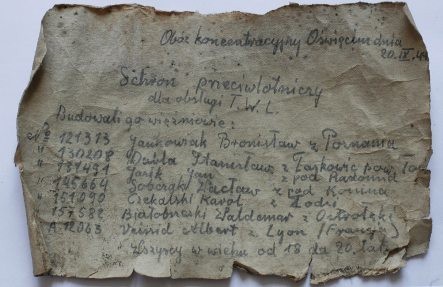 Obóz koncentracyjny Oświęcim dnia
20.IX.44
Schron przeciwlotniczy
dla obsługi T.W.L.
Budowali go więźniowie:
No 121313 Jankowiak Bronisław z Poznania
" 130208 Dubla Stanisław z Łaskowic pow.
" 131491 Jasik Jan z pod Radomia
" 145664 Sobczak Wacław z pod Konina
" 151090 Czekalski Karol z Łodzi
" 157582 Białobrzeski Waldemar z Ostrołęki
A.12063 Veissid Albert z Lyon (Francja)
Wszyscy w wieku od 18 do 20 lat